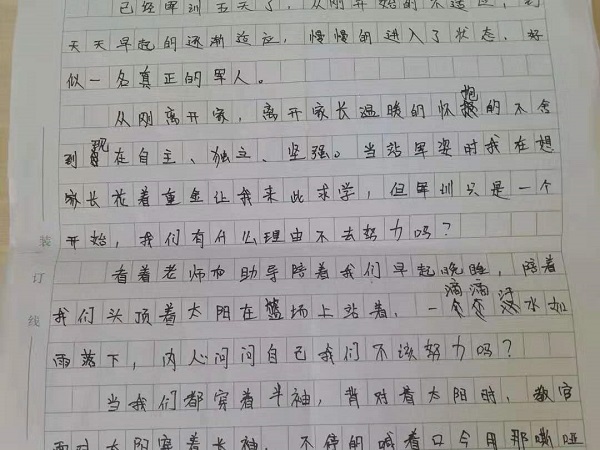 已经军训五天了，从刚开始的不适应，到
天天早起的逐渐适应，慢慢的进入了状态，好
似一名真正的军人。
从刚离开家，离开家长温暖的怀抱的不舍
到现在自主、独立、坚强。当站军姿时我在想
家长花着重金让我来此求学，但军训只是一个
开始，我们有什么理由不去努力吗？
看着老师和助导陪着我们早起晚睡，陪着
我们头顶着太阳在篮场上站着，一滴滴汗水如
雨落下，内心问问自己我们不该努力吗？
当我们都穿着半袖，背对着太阳时，教官
面对太阳穿着长袖，不停的喊着口令用那嘶哑
装
订
线